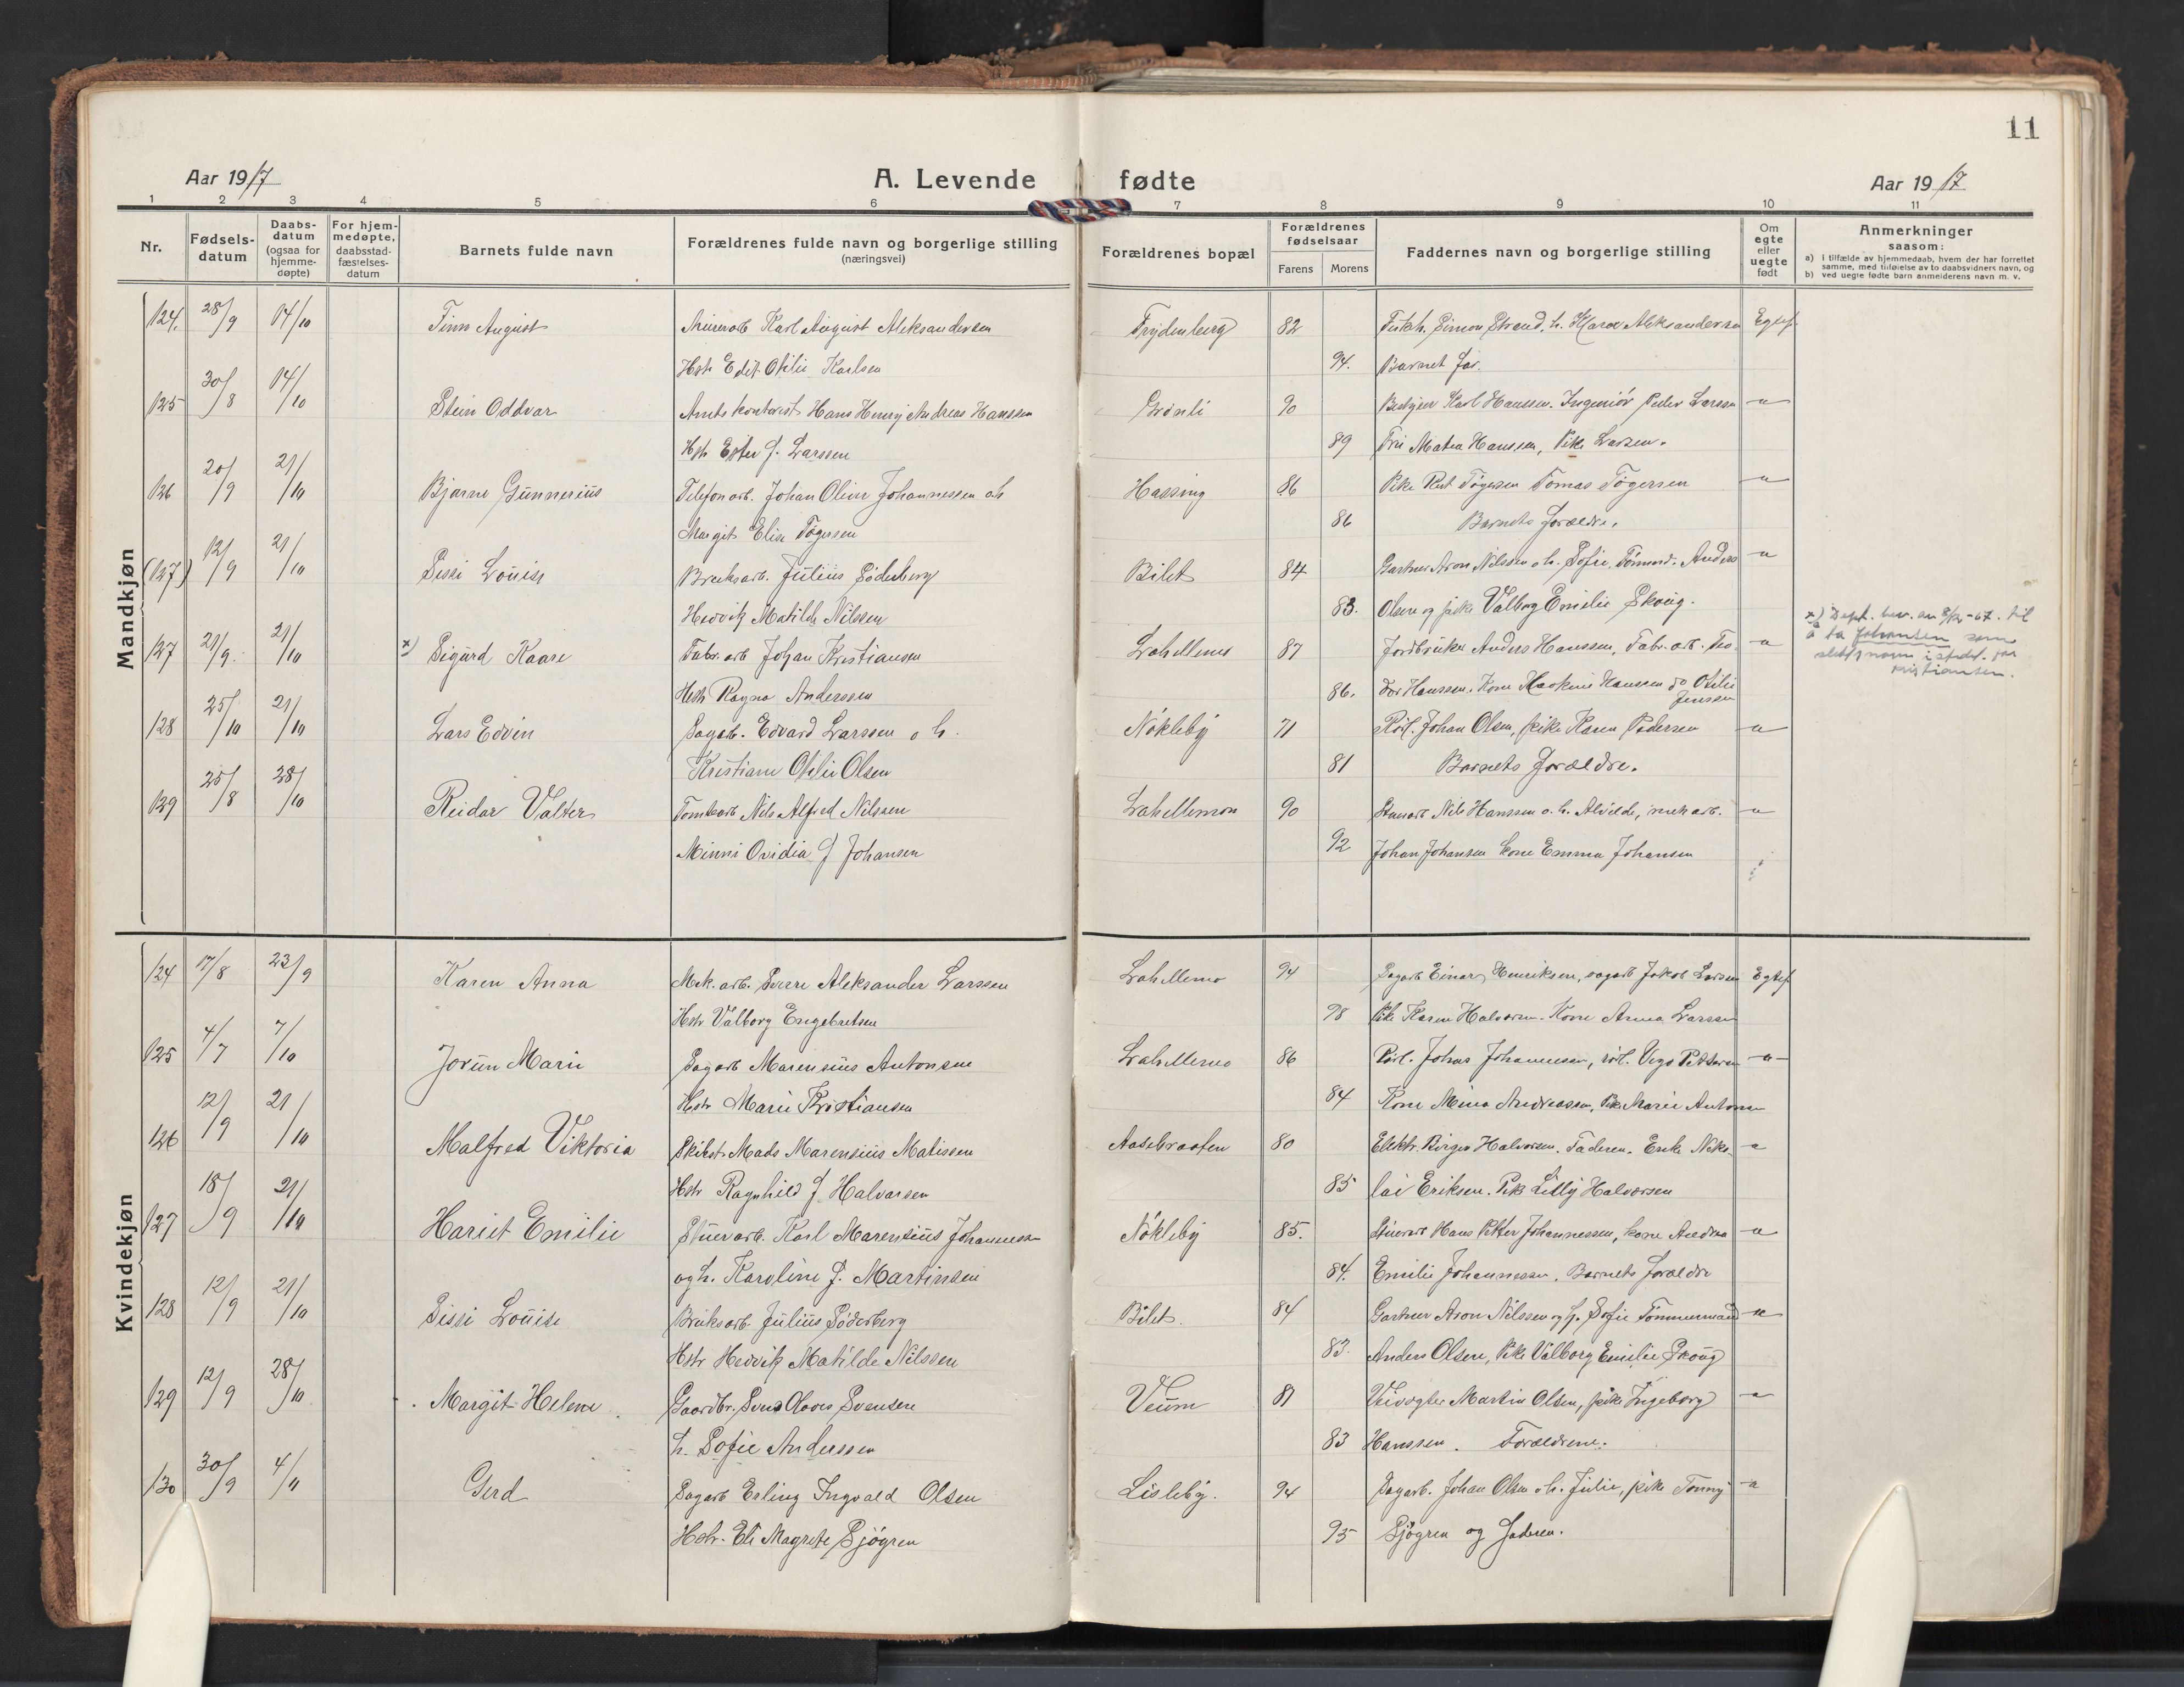 11
Aar 1917
A. Levende fødte
Aar 1917
1 2 3 4 5 6 7 8 9 10 11
Nr.
Fødsels-datum
Daabs-datum (ogsaa for hjemme-døpte)
For hjem-medøpte, daabsstad-fæstelses-datum
Barnets fulde navn
Forældrenes fulde navn og borgerlige stilling (næringsvei)
Forældrenes bopæl
Forældrenes fødselsaar
Farens Morens
Faddernes navn og borgerlige stilling
Om egte eller uegte født
Anmerkninger saasom:
a) i tilfælde av hjemmedaab, hvem der har forrettet samme, med tilføielse av to daabsvidners navn, og
b) ved uegte fødte barn anmelderens navn m. v.
Mandkjøn
124. 28/9 14/10 Finn August Murerarb Karl August Aleksandersen Frydenberg 82 Simon Strand, h. Aleksandersen Egtef
Hstr Edit Otilie Karlsen 94. Barnet far.
125 30/8 14/10 Stein Oddvar Amtskontorist Hans Henry Andreas Hanssen Grønli 90 Bestyrer Karl Hanssen. Ingeniør Peder Larssen -"-
Hstr Ester f. Larssen 89 Matea Hanssen, Pike Larsen.
126 20/9 21/10 Bjarne Gunnerius Telefonarb. Johan Oliver Johannessen o h Hassing 86 Pike Rut Tøgersen Tomas Tøgersen -"-
Margit Elise Tøgersen 86 Barnets forældre.
(127) 12/9 21/10 Sissi Louise Bruksarb. Julius Søderberg Bilet 84 Gartner Aron Nilssen o h. Sofie, Tømmrd. Anders -"-
Hedvig Matilde Nilssen 83. Olsen og pike Valborg Emilie Skoug.
127 21/9. 21/10 x) Sigurd Kaare Fabr. arb Johan Kristiansen Lahellemo 87 Jordbruker Anders Hanssen, Fabr. arb. Teo- -"-
Hstr Ragna Anderssen 86. dor Hanssen. Kone Hanssen do Otilie Jenssen
x) Dept. bev. av til
å ta Johansen som
slektsnavn istedf. for
Kristiansen.
128 25/10 21/10 Lars Edvin Sagarb. Edvard Larssen o h. Nøkleby 71 Johan Olsen, pike Karen Pedersen -"-
Kristiane Otilie Olsen 81 Barnets forældre.
129 25/8 28/10 Reidar Valter Tomtearb Nils Alfred Nilssen Lahellemoen 90 Stuerarb Nils Hanssen o. h. Alvilde, mek arb. -"-
Minni Ovidia f Johansen 92 Johan Johansen kone Emma Johansen
Kvindekjøn
124 17/8 23/9 Karen Anna Mek. arb. Sverre Aleksander Larssen Lahellemo 94 Sagarb Einar Henriksen, sagarb Jakob Larsen Egtef
Hstr Valborg Engebretsen 98 Pike Karen Halvorsen. Kone Anna Larssen
125 4/7 7/10 Jorun Marie Sagarb Marensius Antonsen Lahellemo 86 Rørl. Johas Johannessen, rørl. Vigo Pettersen -"-
Hstr Marie Kristiansen 84 Kone Mina Andreassen, Pike Marie Antonsen
126 12/9 21/10 Malfred Viktoria Skibst. Mads Marensius Matissen Aasebraaten 80 Elektr. Birger Halvorsen. Faderen. Enke Niko- -"-
Hstr Ragnhild f. Halvorsen 85 lai Eriksen. Pike Lilly Halvorsen
127 18/9 21/10 Hariet Emilie Stuerarb. Karl Marensius Johannessen Nøkleby 85. Stuerarb Hans Petter Johannessen, kone Andrea -"-
og h. Karoline f. Martinsen 84. Emilie Johannessen. Barnets forældre
128 12/9 21/10 Sissi Louise Bruksarb. Julius Søderberg Bilet. 84 Gartner Aron Nilssen og h. Sofie Tømmermand -"-
Hstr Hedvig Matilde Nilssen 83. Anders Olsen, Pike Valborg Emilie Skoug
129 12/9 28/10 Margit Helene Gaardbr. Svens Olaves Svensen Veum 81 Veivogter Martin Olsen, pike Ingeborg -"-
h. Sofie Anderssen 83 Hanssen. Forældrene.
130 30/9 4/11 Gerd Sagarb Erling Ingvald Olsen Lisleby. 94 Sagarb. Johan Olsen o h. Julie, pike Tonny -"-
Hstr. Eli Magrete Sjøgren 95 Sjøgren og Faderen.